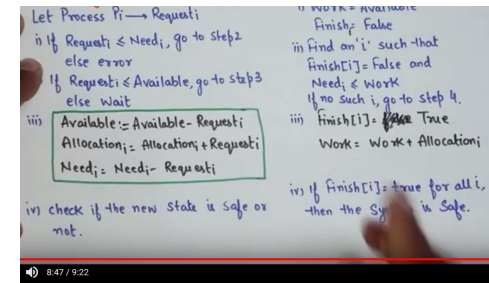 Let Process Pi → Requesti
i) If Requesti ≤ Needi, go to Step2
else error
If Requesti ≤ Available, go to step3
else Wait
iii) Available := Available - Requesti
Allocationi = Allocationi + Requesti
Needi = Needi - Requesti
iv) check if the new state is safe or
not.
i) Work = Available
Finishi = False
ii) Find an 'i' such that
Finish[i] = False and
Needi ≤ Work
If no such i, go to step 4.
iii) Finish[i] = True
Work = Work + Allocationi
iv) If Finish[i] = true for all i,
then the is Safe.
8:47 / 9:22